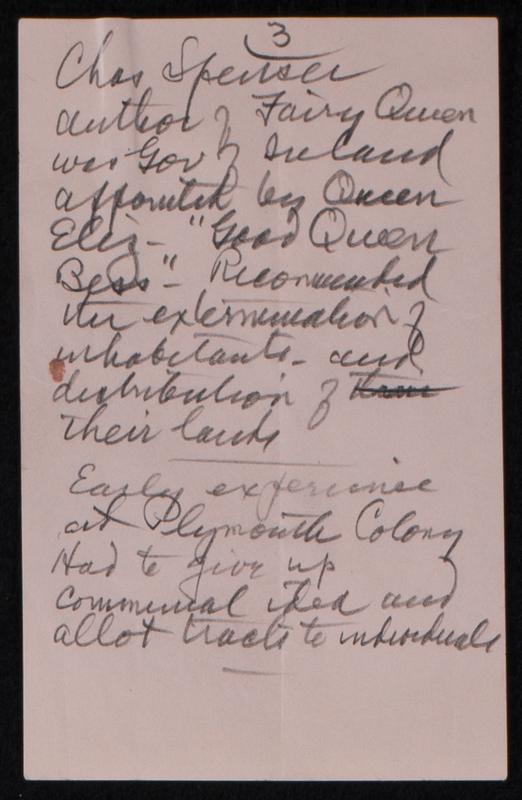 3
Chas Spenser
author of Fairy Queen
was Gov of Ireland
appointed by Queen
Eliz - "Good Queen
Bess" - Recommended
the extermination of
inhabitants - and
distribution of their
their lands
Early experience
at Plymouth Colony
Had to give up
communal idea and
allot tracts to individuals